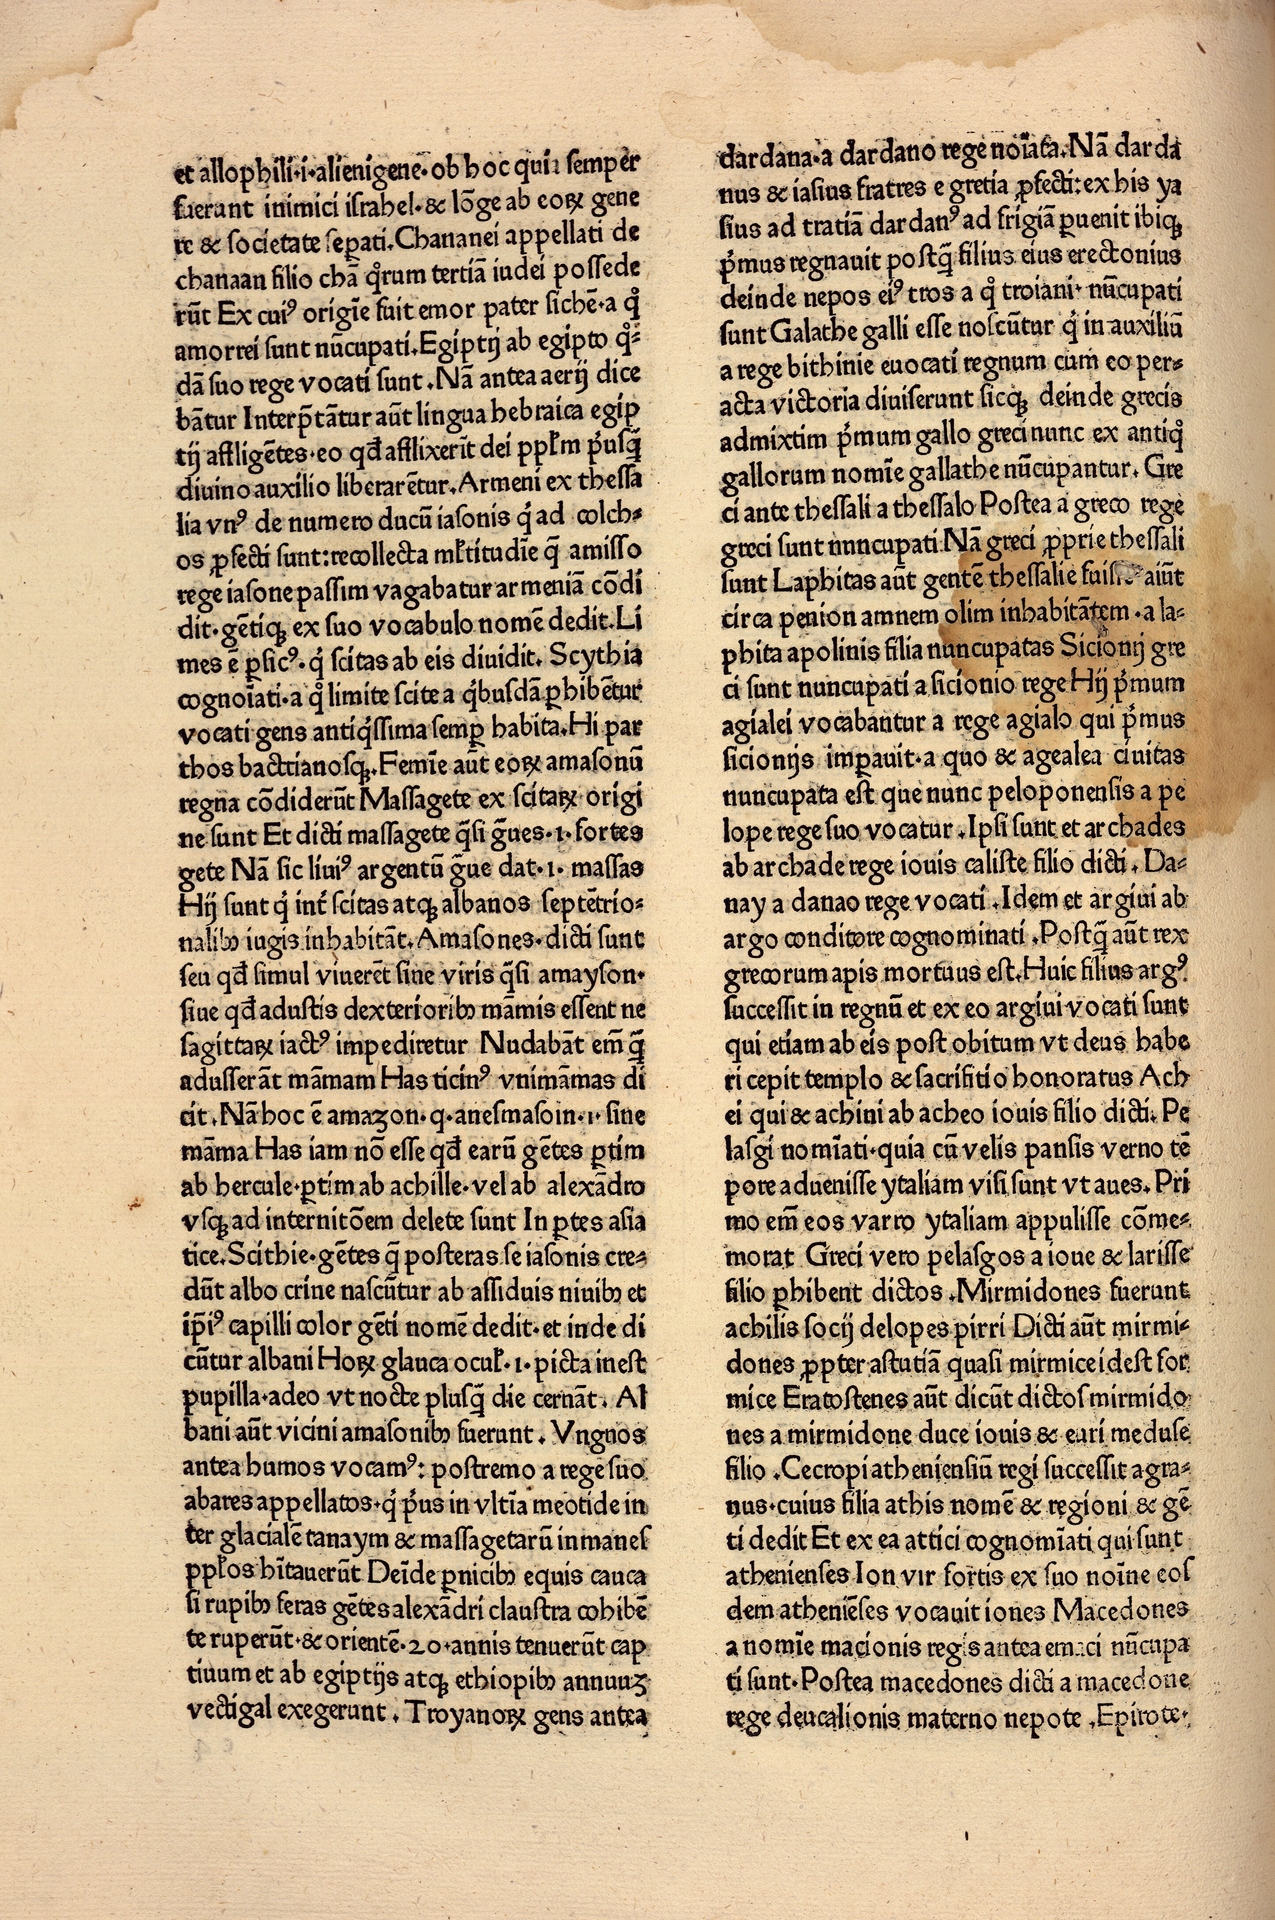 et allophili·i·alienigene·ob hoc quia semper
fuerant inimici israhel·& lõge ab eoꝝ gene
re & societate sepati.Chananei appellati de
chanaan filio chã qͦrum tertiã iudei possede
rũt Ex cuiꝰ origĩe fuit emor pater sichẽ·a qͦ
amorrei sunt nũcupati.Egiptij ab egipto qͦ⸗
dã suo rege vocati sunt.Nã antea aerij dice
bãtur Interp̃tãtur aũt lingua hebraica egip
tij affligẽtes·eo qđ afflixerĩt dei pplɫm pͥusq̃
diuino auxilio liberarẽtur.Armeni ex thessa
lia vnꝰ de numero ducũ iasonis qͥ ad colch⸗
os ꝓfecti sunt:recollecta mɫtitudĩe q̃ amisso
rege iasone passim vagabatur armeniã cõdi
dit·gẽtiqꝫ ex suo vocabulo nomẽ dedit.Li
mes ẽ ꝑsicꝰ·qͥ scitas ab eis diuidit. Scythia
cognoĩati·a qͦ limite scite a qͥbusdã ꝑhibẽtur
vocati gens antiqͥssima semꝑ habita.Hi par
thos bactrianosqꝫ.Femĩe aũt eoꝝ amasonũ
regna cõdiderũt Massagete ex scitaꝝ origi
ne sunt Et dicti massagete q̃si g̃ues·1·fortes
gete Nã sic liuiꝰ argentũ g̃ue dat·1· massas
Hij sunt qͥ int̃ scitas atqꝫ albanos septẽtrio⸗
nalibꝰ iugis inhabitãt.Amasones·dicti sunt
seu qđ simul viuerẽt sine viris q̃si amayson·
siue qđ adustis dexterioribꝰ mãmis essent ne
sagittaꝝ iactꝰ impediretur Nudabãt em̃ q̃
adusserãt mãmam Has ticinꝰ vnimãmas di
cit.Nã hoc ẽ amazon·q·anesmasoin·1· sine
mãma Has iam nõ esse qđ earũ gẽtes ꝑtim
ab hercule·ꝑtim ab achille·vel ab alexãdro
vsqꝫ ad internitõem delete sunt In ꝑtes asia
tice.Scithie·gẽtes q̃ posteras se iasonis cre⸗
dũt albo crine nascũtur ab assiduis niuibꝰ et
ip̃iꝰ capilli color gẽti nomẽ dedit·et inde di
cũtur albani Hoꝝ glauca ocuɫ·1·picta inest
pupilla·adeo vt nocte plusq̃ die cernãt. Al
bani aũt vicini amasonibꝰ fuerunt. Vngnos
antea humos vocamꝰ: postremo a rege suo
abares appellatos·qͥ pͥus in vltĩa meotide in
ter glacialẽ tanaym & massagetarũ inmanes
ppɫos hĩtauerũt Deĩde ꝑnicibꝰ equis cauca
si rupibꝰ feras gẽtes alexãdri claustra cohibẽ
te ruperũt·& orientẽ·20·annis tenuerũt cap
tiuum et ab egiptijs atqꝫ ethiopibꝰ annuuꝫ
vectigal exegerunt. Troyanoꝝ gens antea
dardana·a dardano rege noĩata.Nã darda
nus & iasius fratres e gretia ꝓfecti:ex his ya
sius ad tratiã dardanꝰ ad frigiã ꝑuenit ibiqꝫ
pͥmus regnauit postq̃ filius eius erectonius
deinde nepos eiꝰ tros a qͦ troiani· nũcupati
sunt Galathe galli esse noscũtur qͥ in auxiliũ
a rege bithinie euocati regnum cum eo per⸗
acta victoria diuiserunt sicqꝫ deinde grecis
admixtim pͥmum gallo greci nunc ex antiqͦ
gallorum nomĩe gallathe nũcupantur. Gre
ci ante thessali a thessalo Postea a greco rege
greci sunt nuncupati.Nã greci ꝓprie thessali
sunt Laphitas aũt gentẽ thessalie aiũt
circa penion amnem olim inhabitãtem·a la⸗
phita apolinis filia nuncupatas Sicionij gre
ci sunt nuncupati a sicionio rege Hij pͥmum
agialei vocabantur a rege agialo qui pͥmus
sicionijs imꝑauit·a quo & agealea ciuitas
nuncupata est que nunc peloponensis a pe
lope rege suo vocatur.Ipsi sunt et archades
ab archade rege iouis caliste filio dicti. Da⸗
nay a danao rege vocati.Idem et argiui ab
argo conditore cognominati.Postq̃ aũt rex
grecorum apis mortuus est.Huic filius argꝰ
successit in regnũ et ex eo argiui vocati sunt
qui etiam ab eis post obitum vt deus habe
ri cepit templo & sacrifitio honoratus Ach
ei qui & achini ab acheo iouis filio dicti. Pe
lasgi nomĩati·quia cũ velis pansis verno tẽ
pore aduenisse ytaliam visi sunt vt aues. Pri
mo em̃ eos varro ytaliam appulisse cõme⸗
morat Greci vero pelasgos a ioue & larisse
filio ꝑhibent dictos.Mirmidones fuerunt
achilis socij delopes pirri Dicti aũt mirmi⸗
dones ꝓpter astutiã quasi mirmice idest for
mice Eratostenes aũt dicũt dictos mirmido
nes a mirmidone duce iouis & euri meduse
filio.Cecropi atheniensiũ regi successit agra⸗
nus·cuius filia athis nomẽ & regioni & gẽ
ti dedit Et ex ea attici cognomĩati qui sunt
athenienses Ion vir fortis ex suo noĩne eos
dem atheniẽses vocauit iones Macedones
a nomĩe macionis regis antea nũcupa
ti sunt·Postea macedones dicti a macedone
rege deucalionis materno nepote.Epirote·